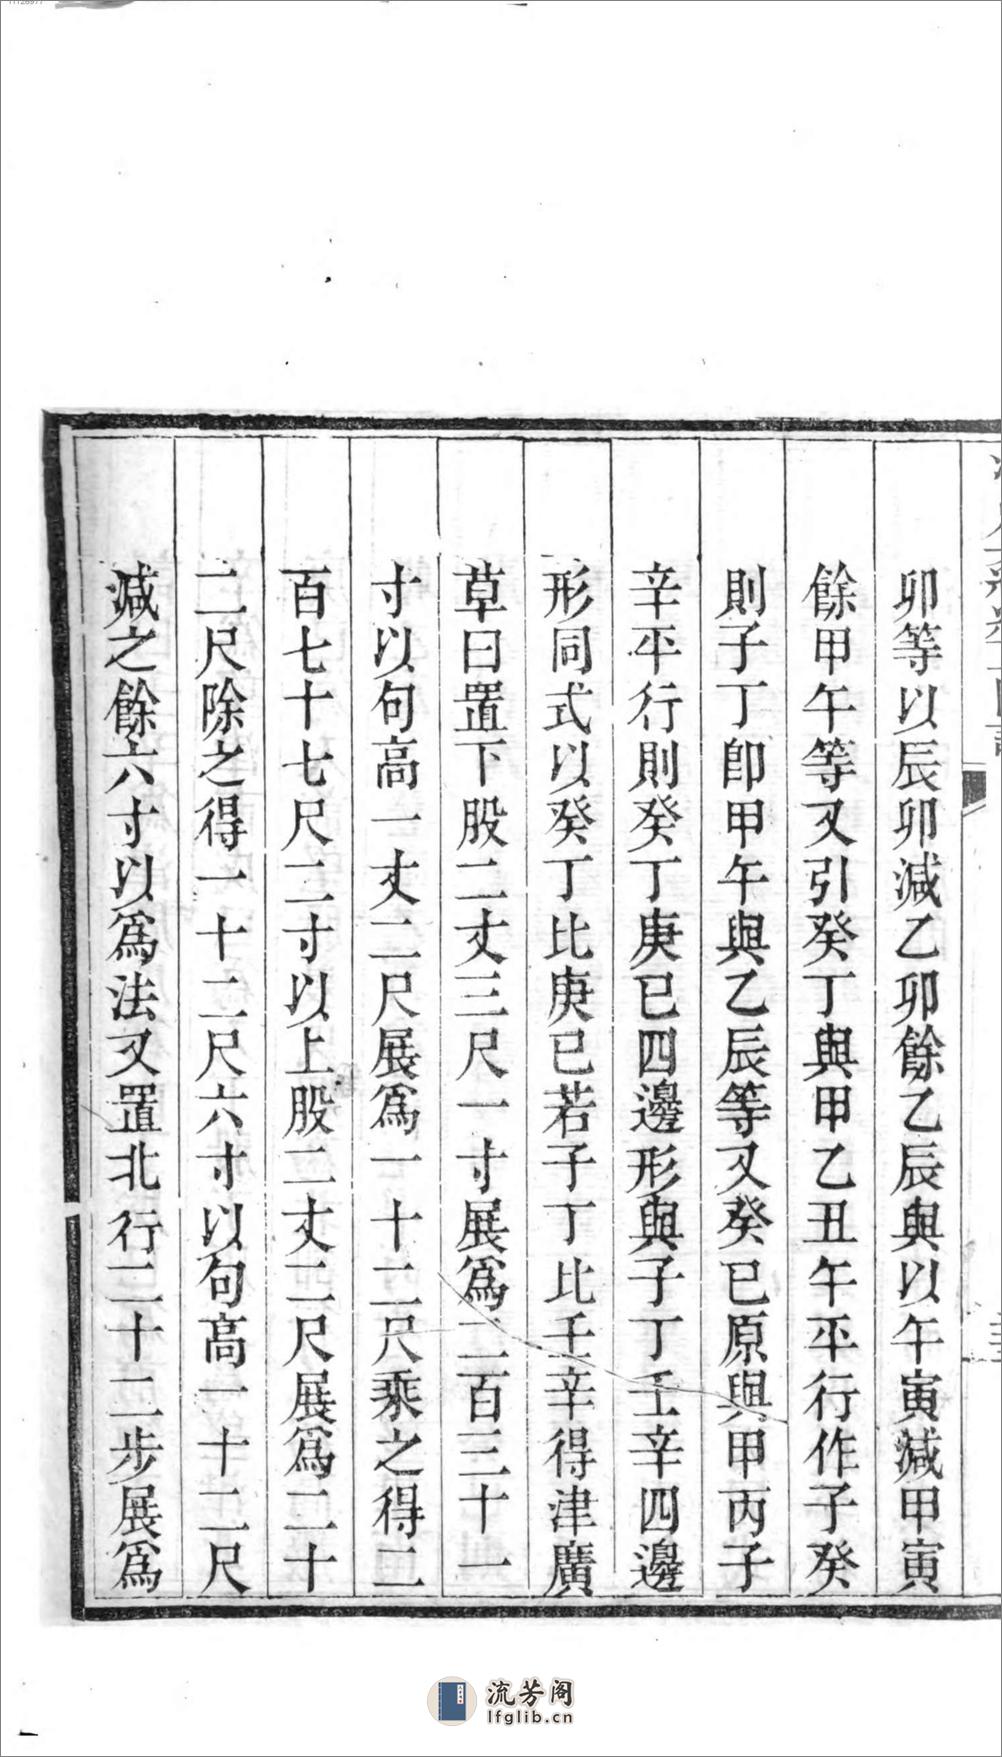 卯等以辰卯減乙卯餘乙辰與以午寅減甲寅
餘甲午等又引癸丁與甲乙丑午平行作子癸
則子丁卽甲午與乙辰等又癸已原與甲丙子
辛平行則癸丁庚已四邊形與子丁壬辛四邊
形同式以癸丁比庚已若子丁比壬辛得津廣
草曰置下股二丈三尺一寸展爲二百三十一
寸以句高一丈二尺展爲一十二尺乘之得二
百七十七尺二寸以上股二丈二尺展爲二十
二尺除之得一十二尺六寸以句高一十二尺
減之餘六寸以爲法又置北行二十二步展爲
流芳阁
lfglib.cn